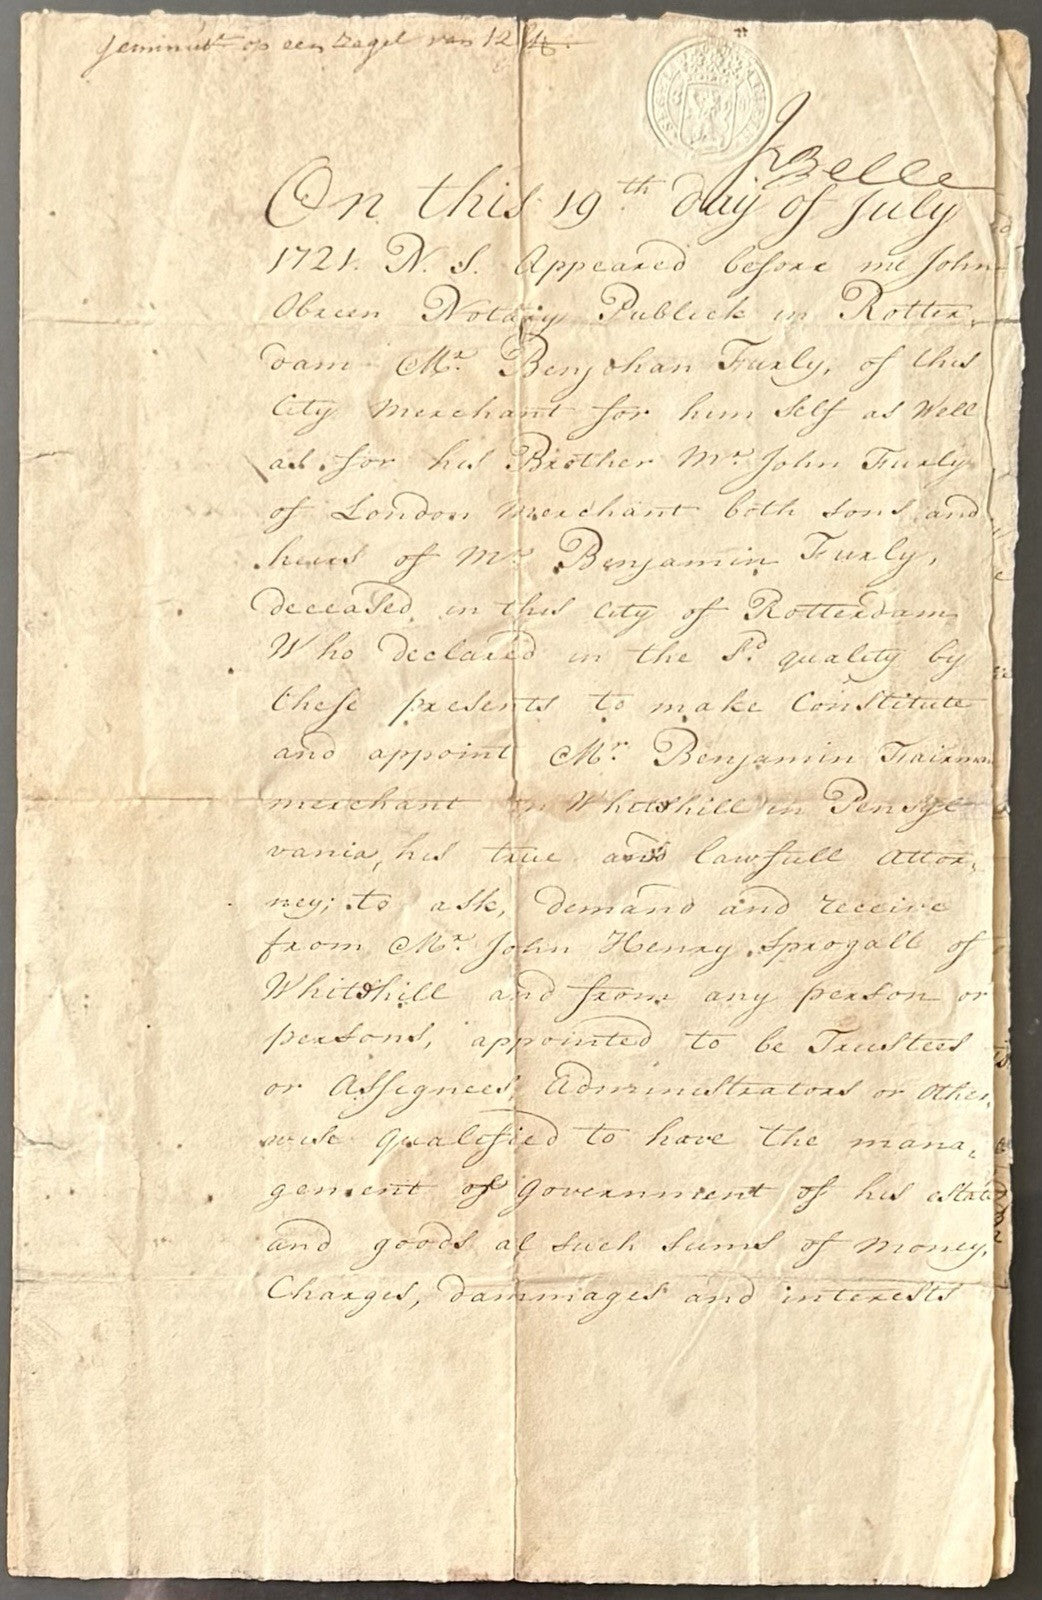 geminutt op een zegel van 12 st.
JvBelle
On this 19th day of July
1721. N. S. Appeared before me John
Obreen Notary Publick in Rotter,
dam Mr. Benjohan Furly, of this
City Merchant for him self as Well
as for his Brother Mr. John Furly
of London Merchant both sons and
heirs of Mr. Benjamin Furly,
deceased, in this City of Rotterdam
Who declared in the Sd. quality by
these presents to make Constitute
and appoint Mr. Benjamin Fairman
merchant in Whitshill in Pensyl
vania, his true and lawfull Attor,
ney; to ask, demand and receive
from Mr. John Henry Sprogall of
Whitshill and from any person or
persons, appointed to be Trustees
or Assignees, Administrators or Other,
wise qualified to have the mana,
gement of Government of his estate
and goods al such sums of Money,
Charges, dammages and interests